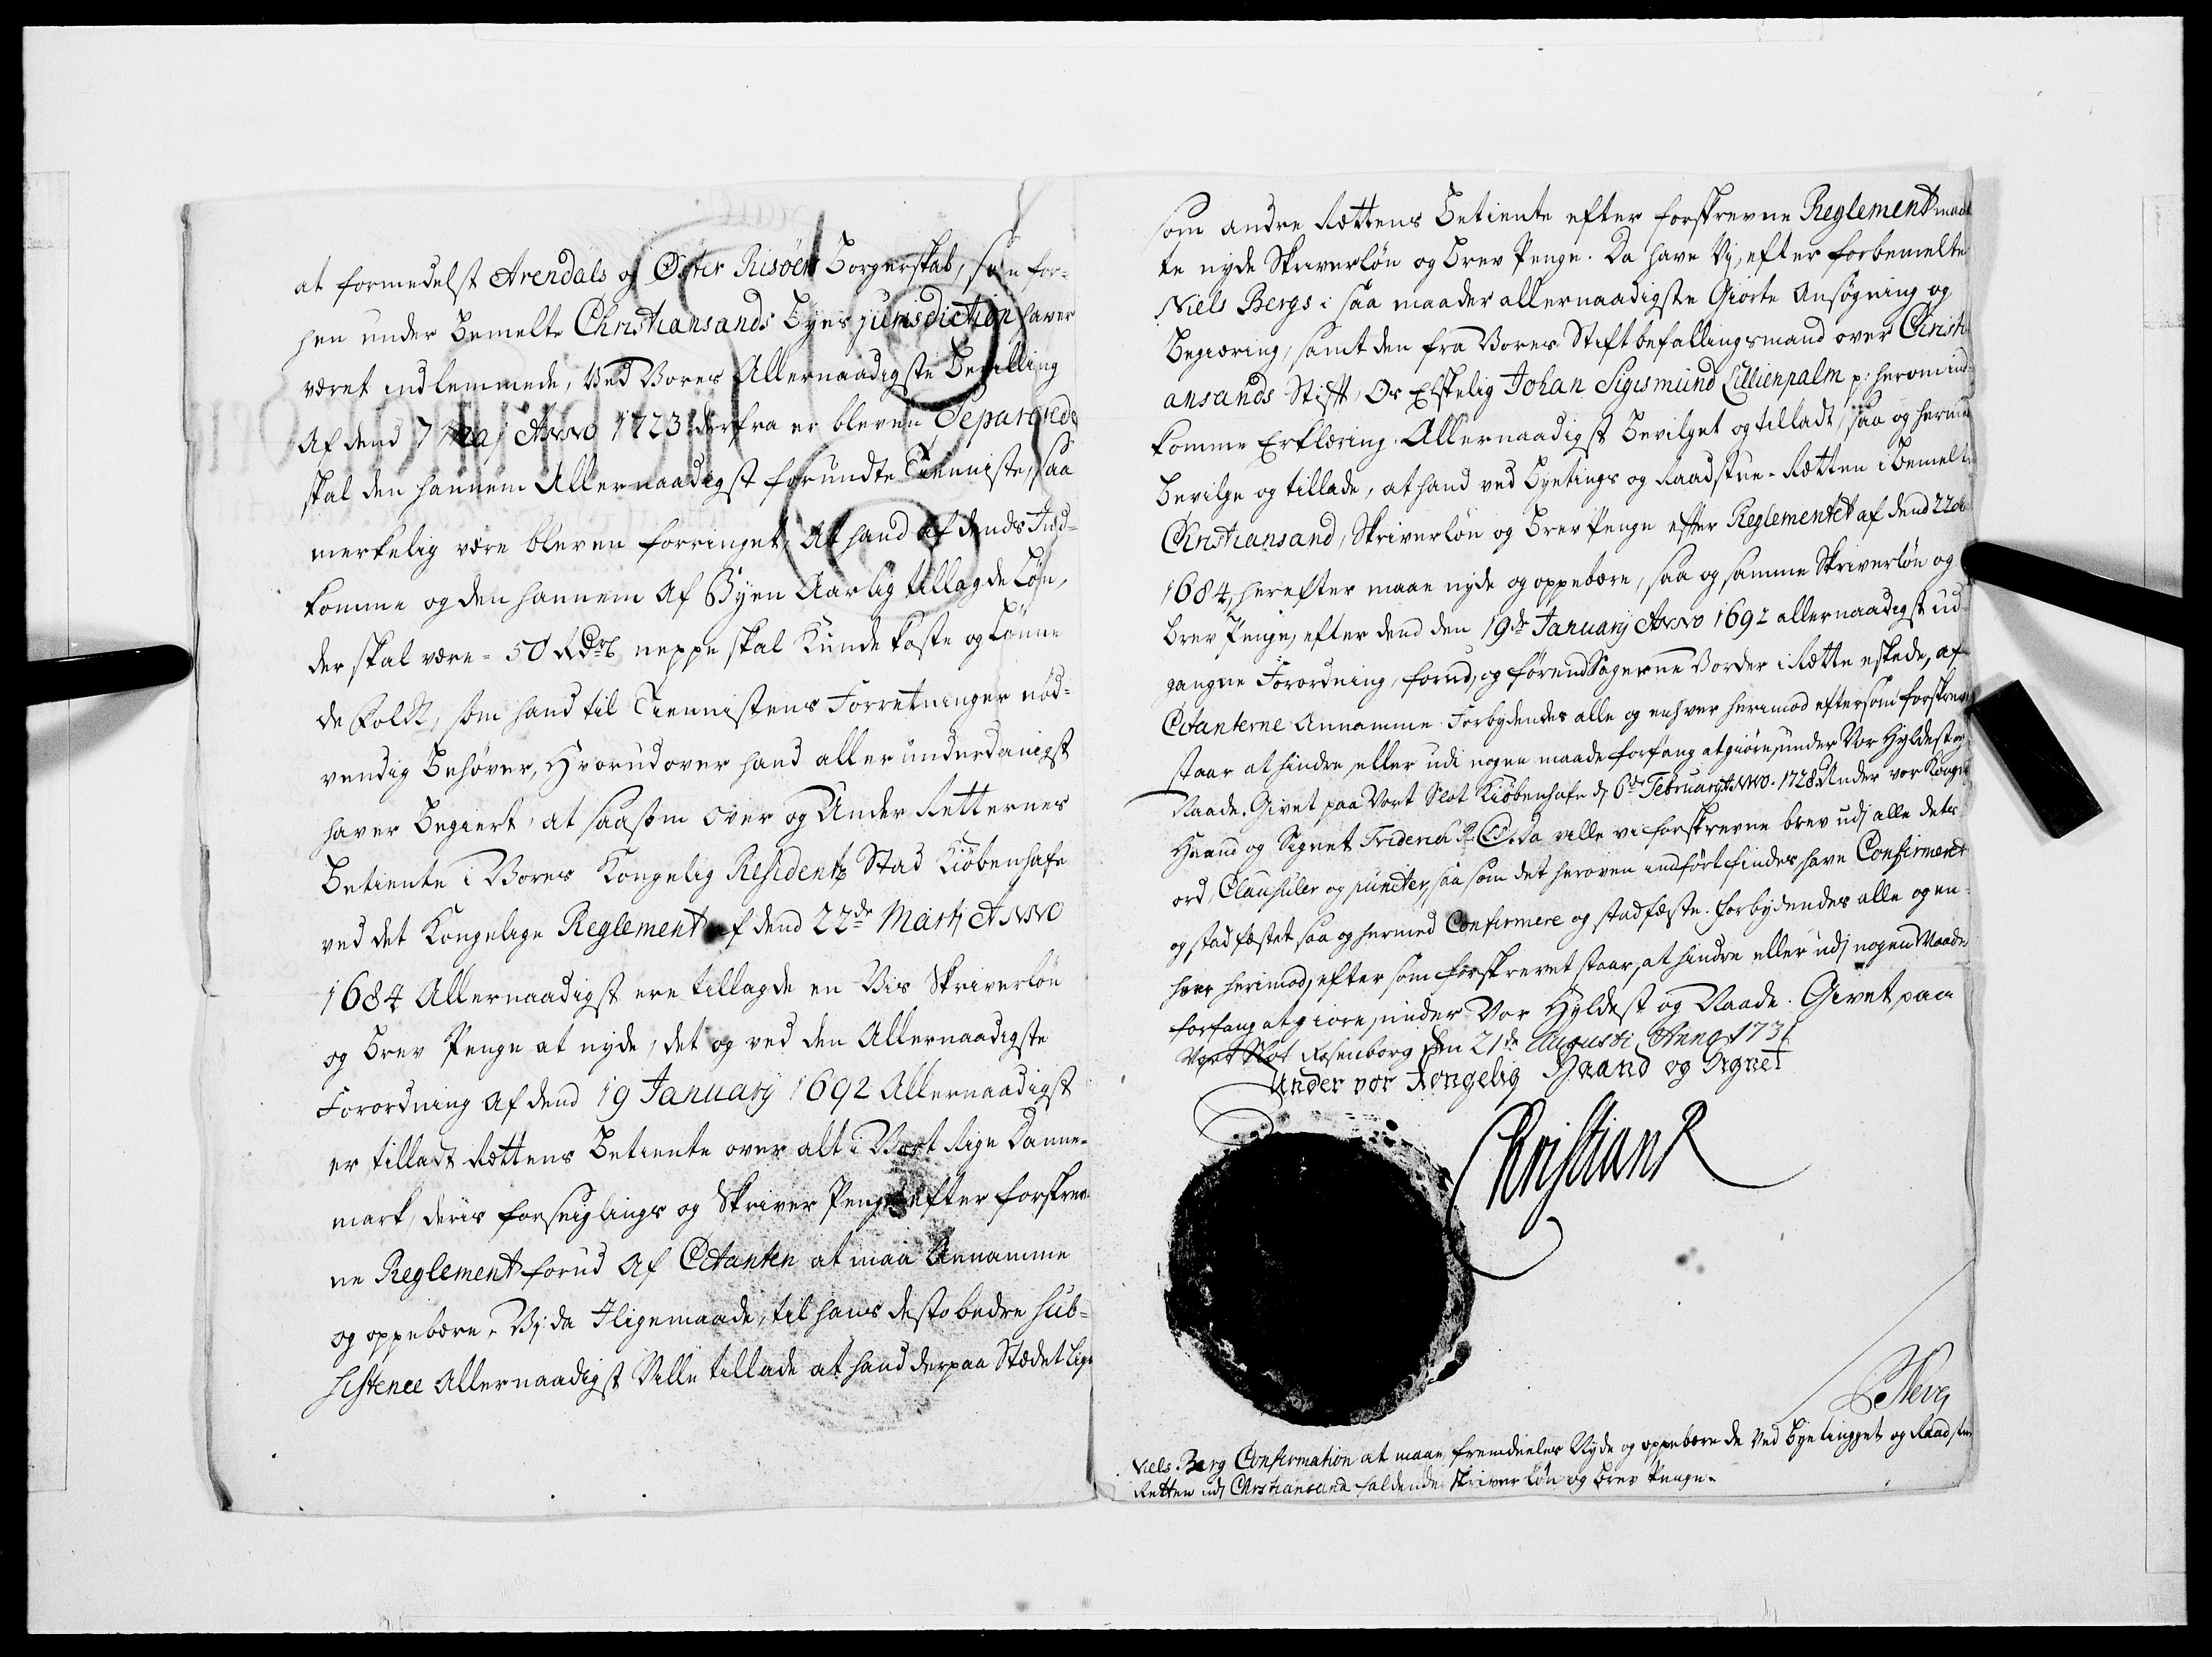 at formedelst Arendals og Øster Risöers Borgerskab, som for-
hen under bemelte Christiansands Byes jurisdiction haver
været indlemmede, Ved Vores Allernaadigste Bevilling
Af dend 7 Maj Anno 1723 derfra er bleven Separerede
skal den hannem Allernaadigst forundte Tienniste, saa
merkelig være bleven forringet, At hand af dends Ind-
komme og den hannem Af Byen Aarlig tillagde Løn,
der skal være = 50 Rdr neppe skal Kunde koste og Lønne
de Folck, som hand til Tiennistens Forretninger nød-
vendig Behøver, Hvorudover hand allerunderdanigst
haver Begiert, at saasom Over og Under Retternes
Betiente i Vores Kongelig Residentz Stad Kiöbenhafn
ved det Kongelige Reglement af dend 22de Martj Anno
1684 Allernaadigst ere tillagde en Vis Skriverløn
og Brev Penge at nyde, det og ved den Allernaadigste
Forordning Af dend 19 January 1692 Allernaadigst
er tilladt Rettens Betiente over alt i Vort Rige Danne-
mark, deris forseiglings og Skriver Penge efter forskrev-
ne Reglement forud Af Citanten at maa Annamme
og oppebære, Vj da Iligemaade, til hans desto bedre sub-
sistence Allernaadigst Ville tillade at hand derpaa Stædet lige
som andre Rettens Betiente efter forskrevne Reglement maat
te nyde Skriverløn og Brev Penge. Da have Vj, efter forbemelte
Niels Bergs i saa maader allernaadigste Giorte Ansøgning og
Begiæring, samt den fra Vores Stiftbefallingsmand over Christi-
ansands Stift, Os Elskelig Johan Sigismund Lillienpalm p: herom ind-
komme Erklæring. Allernaadigst Bevilget og tilladt, saa og herme
Bevilge og tillade, at hand ved Byetings og Raadstue-Retten i Bemelte
Christiansand, Skriverløn og Brev Penge efter Reglementet af dend 22de
1684, herefter maae nyde og oppebære, saa og samme Skriverløn og
Brev Penge, efter dend den 19de January Anno 1692 allernaadigst ud-
gangne Forordning, forud, og førend Sagerne Vorder i Rette eskede, af
Citanterne Annamme. Forbydendes alle og enhver herimod eftersom forskrevet
staar at hindre eller udi nogen maade forfang at giøre, under Vor Hyldest og
Naade. Givet paa Vort Slot Kiöbenhafn d 6de February Anno. 1728. Under vor Konge
Haand og Signet Friderich R. Da ville vi forskrevne brev udj alle dets
ord, Clausuler og puncter, saa som det heroven indført findes have Confirmeret
og stadfæstet saa og hermed Confirmere og stadfæste. forbydendes alle og en-
hver herimod, efter som forskrevet staar, at hindre eller udj nogen Maade
forfang at giøre, under Vor Hyldest og Naade. Givet paa
Vort Slot Rosenborg den 21de Augusti Anno 1731
Under vor Kongelig Haand og Signet
Christian R
Niels Berg Confirmation at maae fremdeeles Nyde og oppebære de Ved Byetinget og Raadstue
Retten udj Christiansand faldende Skriver Løn og Brev Penge.